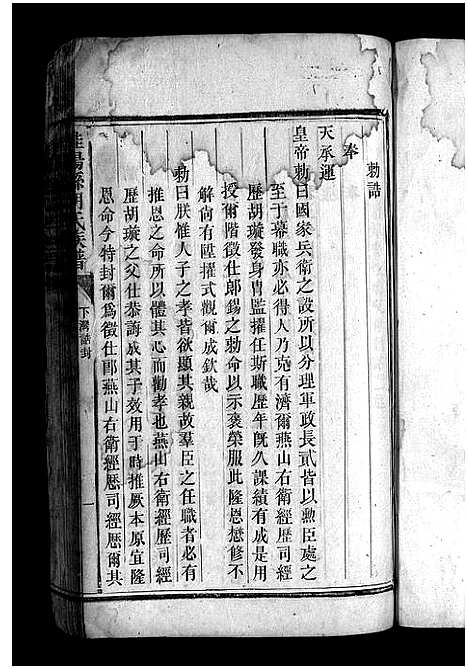 勅誥
奉
天承運
皇帝勅曰國家兵衛之設所以分理軍政長貳皆以勲臣處之
至于幕職亦必得人乃克有濟爾燕山右衛經歷司經
歷胡璇發身冑監擢任斯職歷年旣久課績有成是用
授爾階徵仕郎錫之勅命以示褒榮服此隆恩懋修不
解尙有陞擢式觀爾成欽哉
勅曰朕惟人子之孝皆欲顯其親故羣臣之任職者必有
推恩之命所以體其心而勸孝也燕山右衛經歷司經
歷胡璇之父仕恭誨成其子效用于時推厥本原宜隆
恩命今特封爾爲徵仕郎燕山右衛經歷司經歷爾其
氏族譜
下灣誥封
一